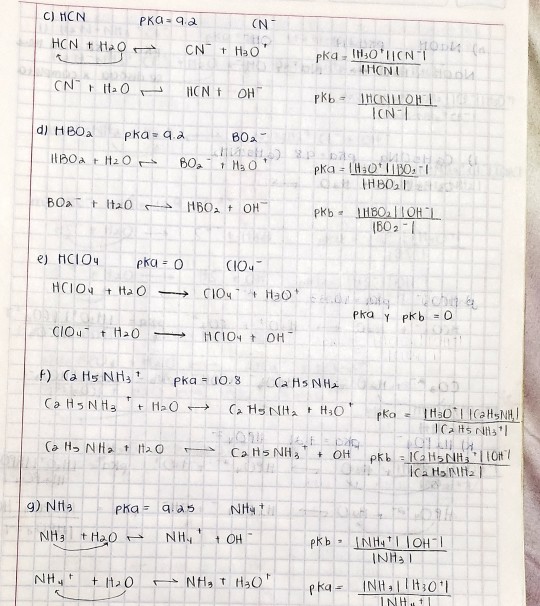 c) HCN pka = 9.2 CN⁻
HCN + H2O ⇌ CN⁻ + H3O⁺ pka = |H3O⁺||CN⁻| / |HCN|
CN⁻ + H2O ⇌ HCN + OH⁻ pkb = |HCN||OH⁻| / |CN⁻|
d) HBO2 pka = 9.2 BO2⁻
HBO2 + H2O ⇌ BO2⁻ + H3O⁺ pka = |H3O⁺||BO2⁻| / |HBO2|
BO2⁻ + H2O ⇌ HBO2 + OH⁻ pkb = |HBO2||OH⁻| / |BO2⁻|
e) HClO4 pka = 0 ClO4⁻
HClO4 + H2O → ClO4⁻ + H3O⁺
pka y pkb = 0
ClO4⁻ + H2O → HClO4 + OH⁻
f) C2H5NH3⁺ pka = 10.8 C2H5NH2
C2H5NH3⁺ + H2O ↔ C2H5NH2 + H3O⁺ pka = |H3O⁺||C2H5NH| / |C2H5NH3⁺|
C2H5NH2 + H2O ⇌ C2H5NH3⁺ + OH⁻ pkb = |C2H5NH3⁺||OH⁻| / |C2H5NH2|
g) NH3 pka = 9.25 NH4⁺
NH3 + H2O ⇌ NH4⁺ + OH⁻ pkb = |NH4⁺||OH⁻| / |NH3|
NH4⁺ + H2O ⇌ NH3 + H3O⁺ pka = |NH3||H3O⁺| / |NH4⁺|